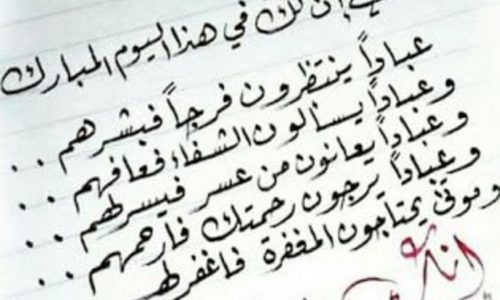 إن لك في هذا اليوم المبارك
عباداً ينتظرون فرجاً فبشرهم . .
وعباداً يسألون الشفاء فعافهم . .
وعباداً يعانون من عسر فيسرلهم . .
وعباداً يرجون رحمتك فارحمهم . .
وموتى يحتاجون المغفرة فاغفرلهم